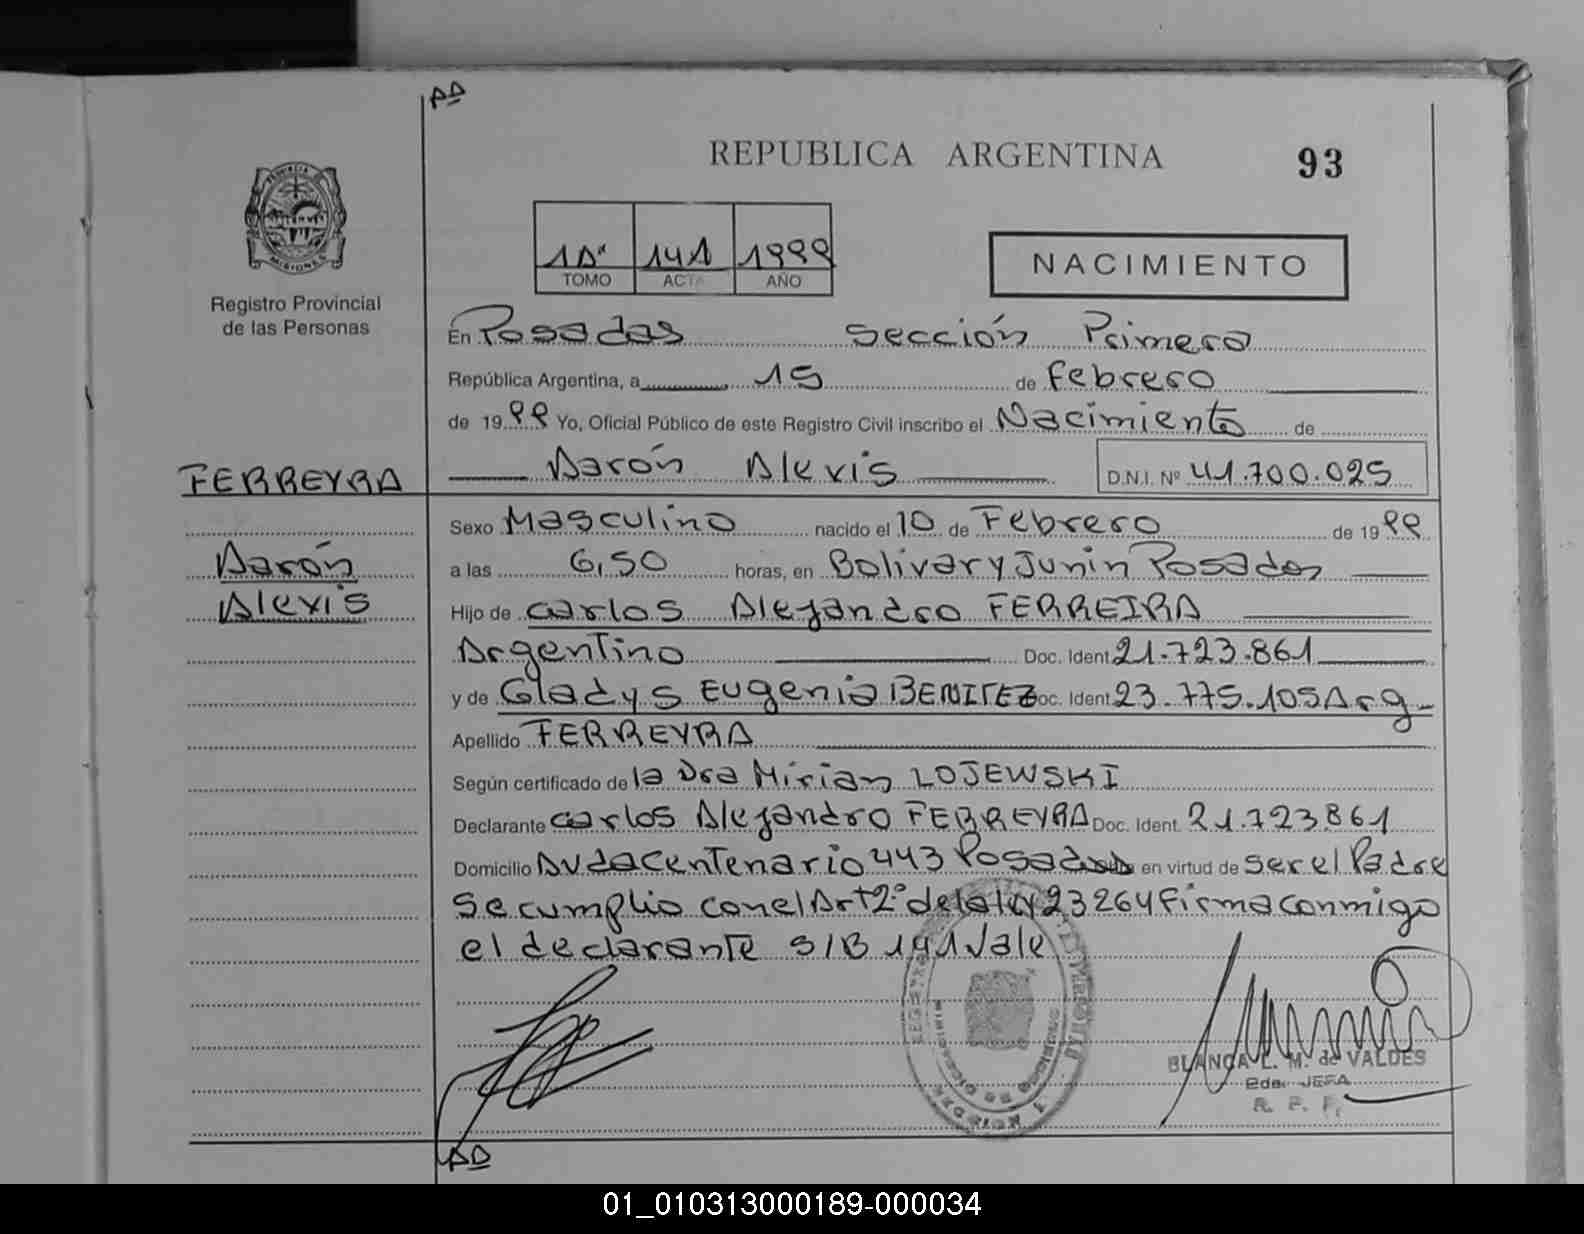 REPUBLICA ARGENTINA 93
1A° 141 1999
TOMO ACTA AÑO
NACIMIENTO
PROVINCIA DE MISIONES
Registro Provincial
de las Personas
En Posadas Sección Primera
República Argentina, a 15 de Febrero
de 1999 Yo, Oficial Público de este Registro Civil inscribo el Nacimiento de
Aarón Alexis D.N.I. Nº 41.700.025
FERREYRA
Aarón
Alexis
Sexo Masculino nacido el 10 de Febrero de 1999
a las 6,50 horas, en Bolivar y Junin Posadas
Hijo de Carlos Alejandro FERREIRA
Argentino Doc. Ident 21.723.861
y de Gladys Eugenia BENITEZ Doc. Ident 23.775.105 Arg.
Apellido FERREYRA
Según certificado de la Dra Mirian LOJEWSKI
Declarante Carlos Alejandro FERREYRA Doc. Ident. 21.723.861
Domicilio Avda Centenario 443 Posadas en virtud de ser el Padre
Se cumplio con el Art 2° de la ley 23264 Firma conmigo
el declarante S/B 141 Vale
BLANCA L. M. de VALDES
2da. JEFA
R. P. P.
01_010313000189-000034